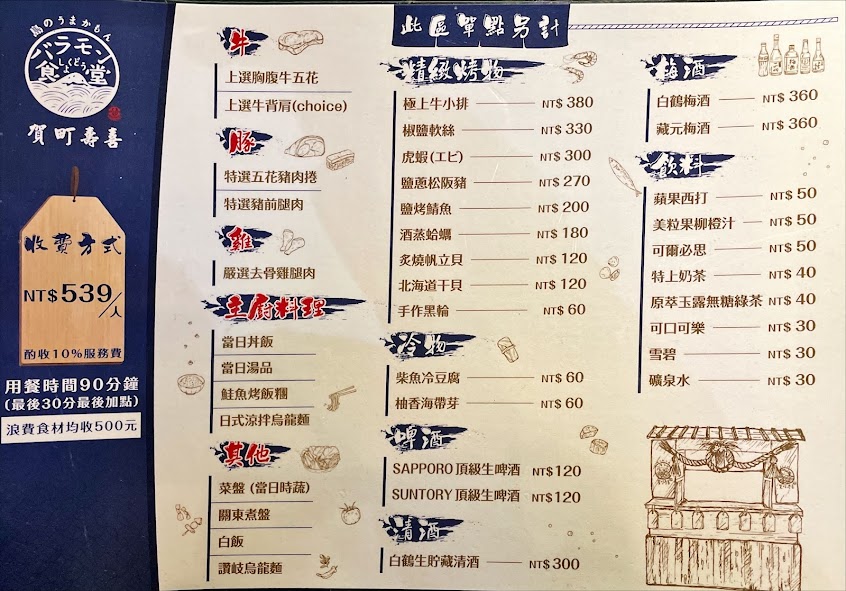 島のうまかもん
バラモン
食堂
しょくどう
賀町壽喜
收費方式
NT$539/人
酌收10%服務費
用餐時間90分鐘
(最後30分最後加點)
浪費食材均收500元
牛
上選胸腹牛五花
上選牛背肩(choice)
豚
特選五花豬肉捲
特選豬前腿肉
雞
嚴選去骨雞腿肉
主廚料理
當日丼飯
當日湯品
鮭魚烤飯糰
日式涼拌烏龍麵
其他
菜盤 (當日時蔬)
關東煮盤
白飯
讚岐烏龍麵
此區單點另計
精緻烤物
極上牛小排 NT$ 380
椒鹽軟絲 NT$ 330
虎蝦(エビ) NT$ 300
鹽蔥松阪豬 NT$ 270
鹽烤鯖魚 NT$ 200
酒蒸蛤蠣 NT$ 180
炙燒帆立貝 NT$ 120
北海道干貝 NT$ 120
手作黑輪 NT$ 60
冷物
柴魚冷豆腐 NT$ 60
柚香海帶芽 NT$ 60
啤酒
SAPPORO 頂級生啤酒 NT$120
SUNTORY 頂級生啤酒 NT$120
清酒
白鶴生貯藏清酒 NT$300
梅酒
白鶴梅酒 NT$ 360
藏元梅酒 NT$ 360
飲料
蘋果西打 NT$ 50
美粒果柳橙汁 NT$ 50
可爾必思 NT$ 50
特上奶茶 NT$ 40
原萃玉露無糖綠茶 NT$ 40
可口可樂 NT$ 30
雪碧 NT$ 30
礦泉水 NT$ 30